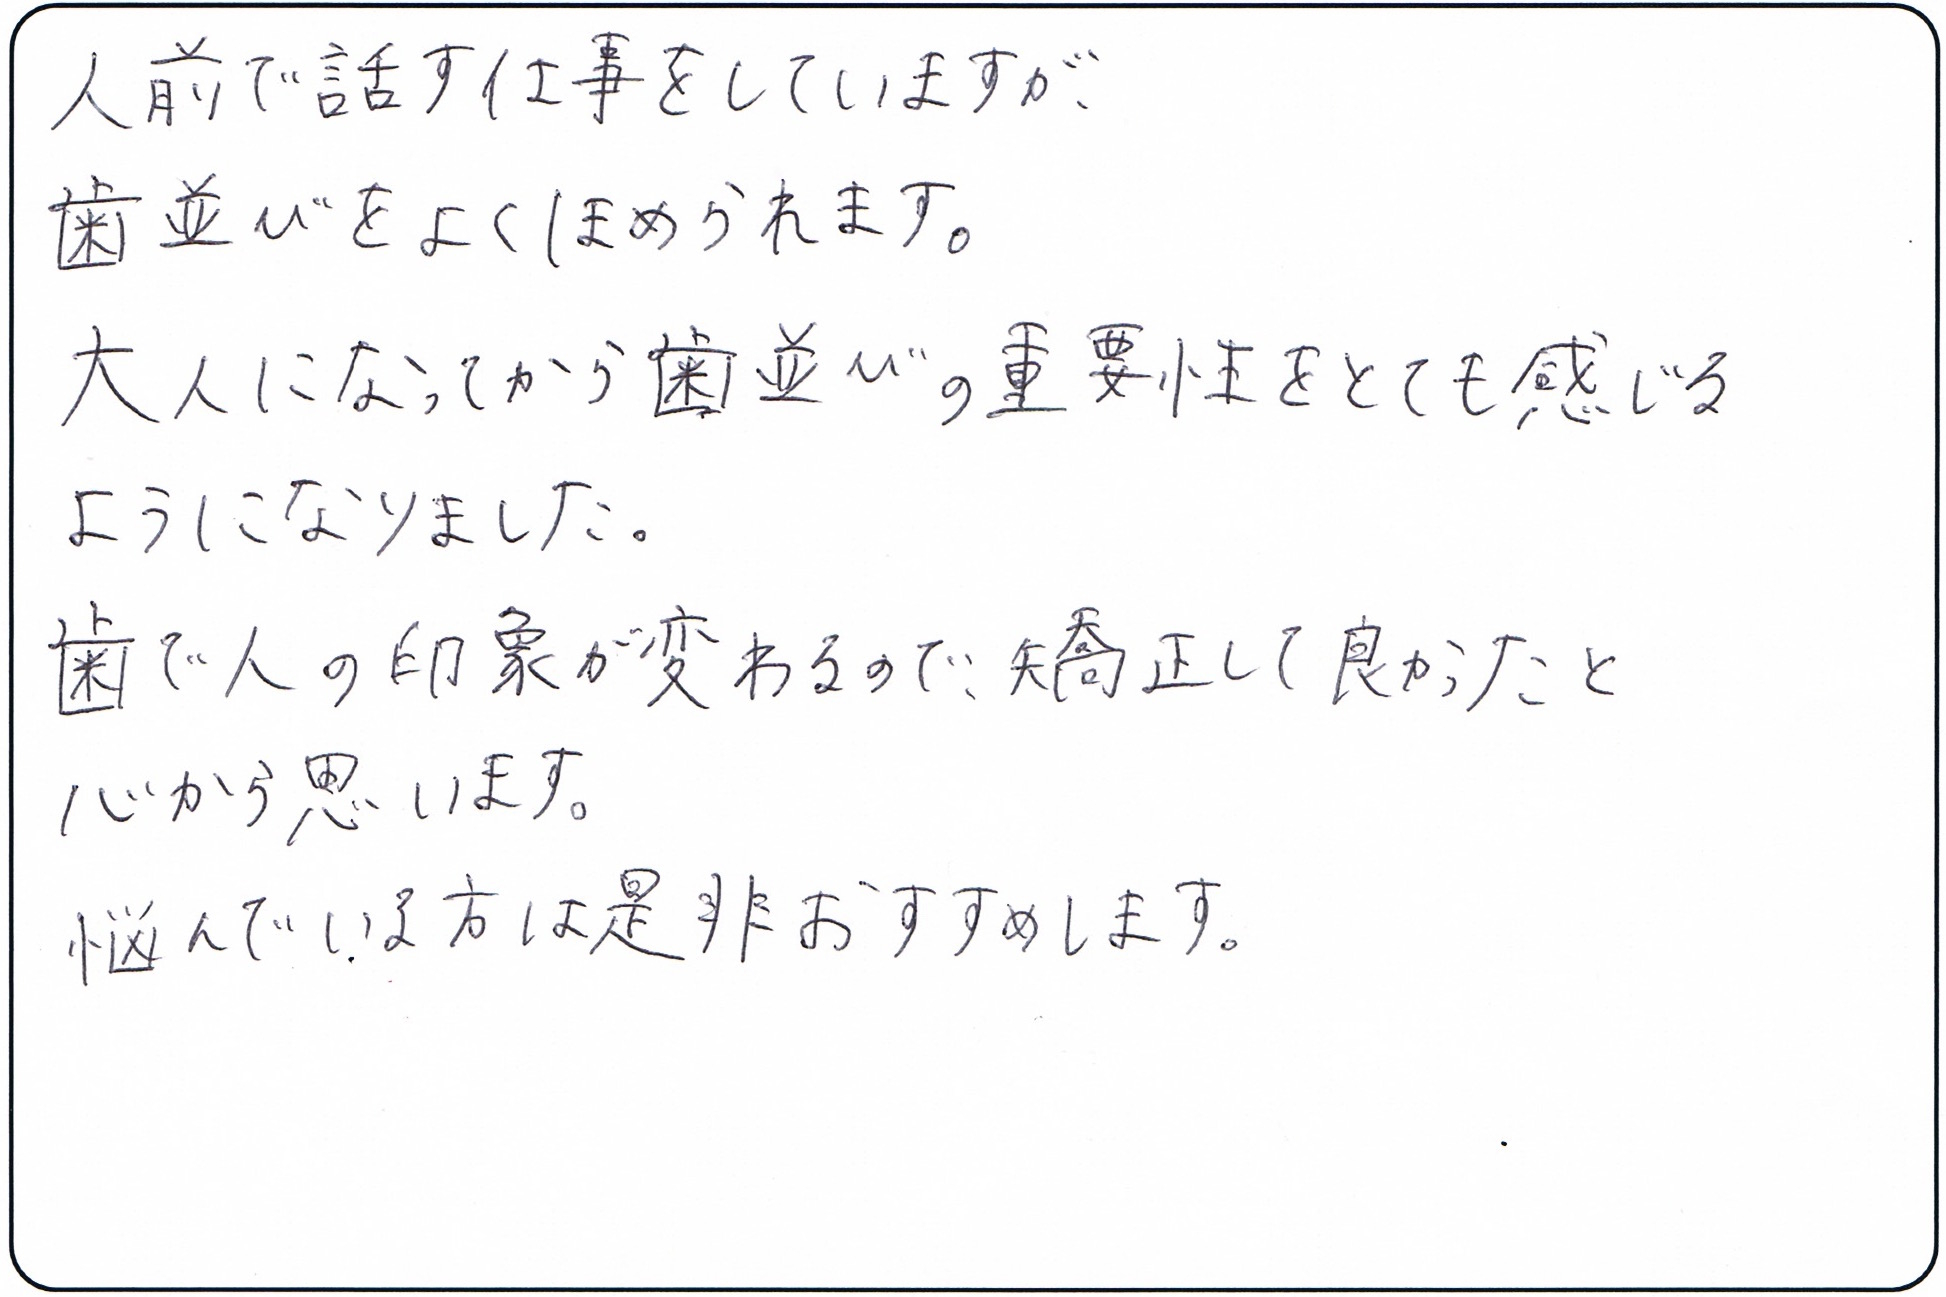 人前で話す仕事をしていますが、
歯並びをよくほめられます。
大人になってから歯並びの重要性をとても感じる
ようになりました。
歯で人の印象が変わるので、矯正して良かったと
心から思います。
悩んでいる方は是非おすすめします。